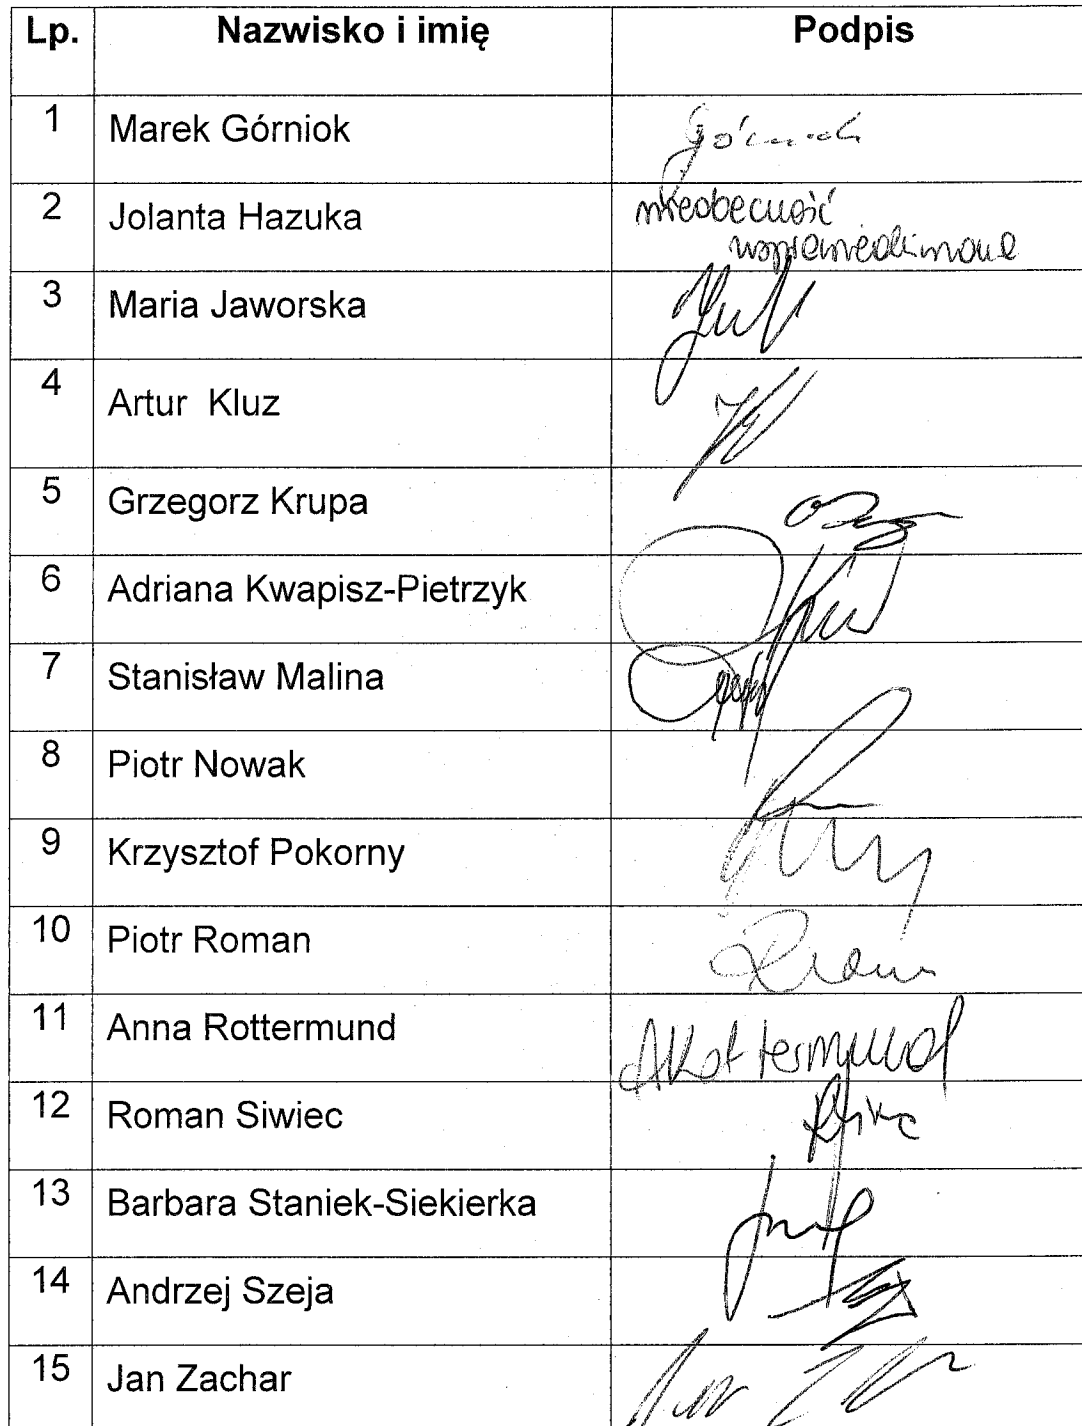 Lp. Nazwisko i imię Podpis
1 Marek Górniok
2 Jolanta Hazuka nieobecność
usprawiedliwiona
3 Maria Jaworska
4 Artur Kluz
5 Grzegorz Krupa
6 Adriana Kwapisz-Pietrzyk
7 Stanisław Malina
8 Piotr Nowak
9 Krzysztof Pokorny
10 Piotr Roman
11 Anna Rottermund ARottermund
12 Roman Siwiec
13 Barbara Staniek-Siekierka
14 Andrzej Szeja
15 Jan Zachar